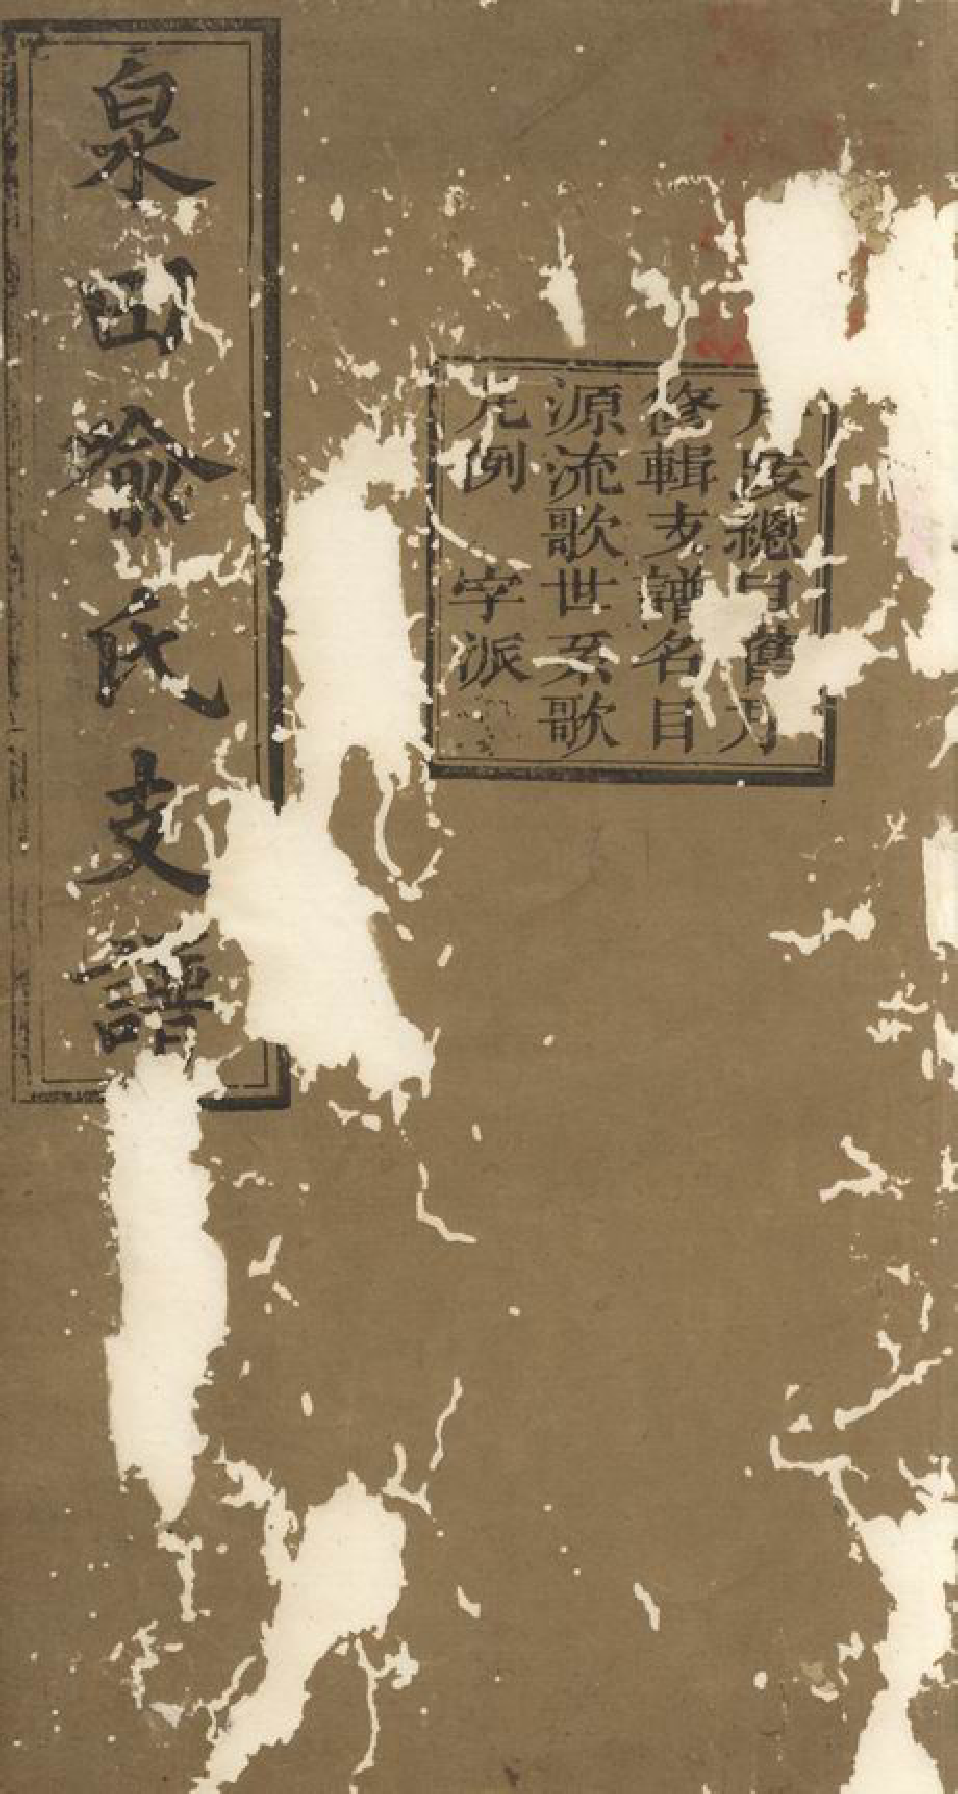 總目舊
修輯支譜名目
源流歌世系歌
凡例 字派
泉田俞氏支譜